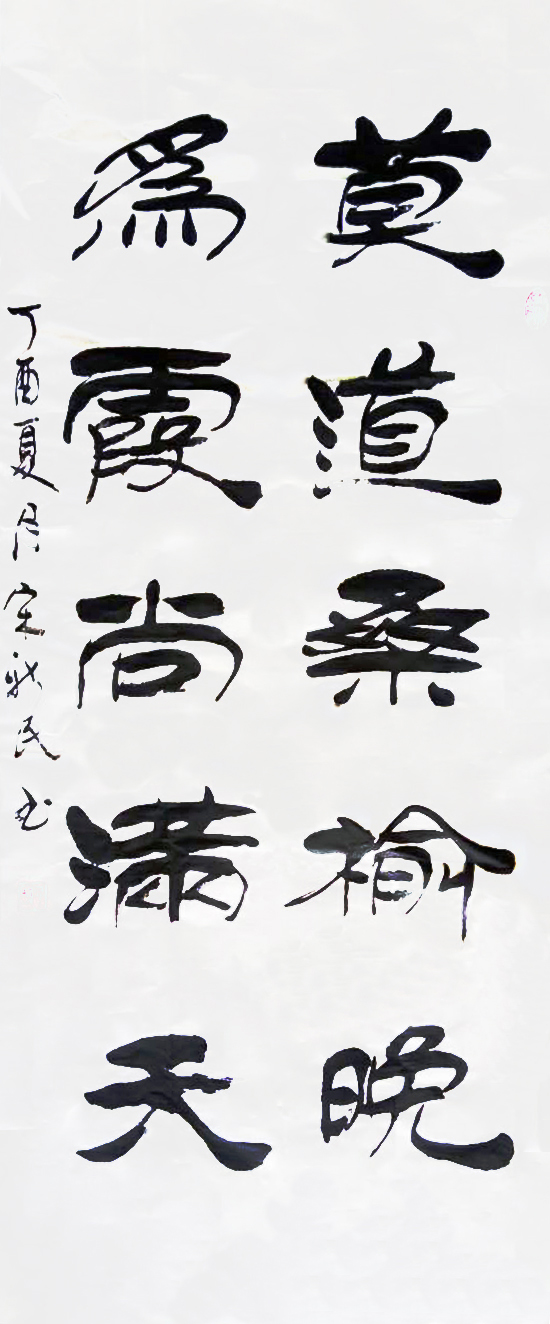 莫道桑榆晚
為霞尚滿天
丁酉夏月宋民书